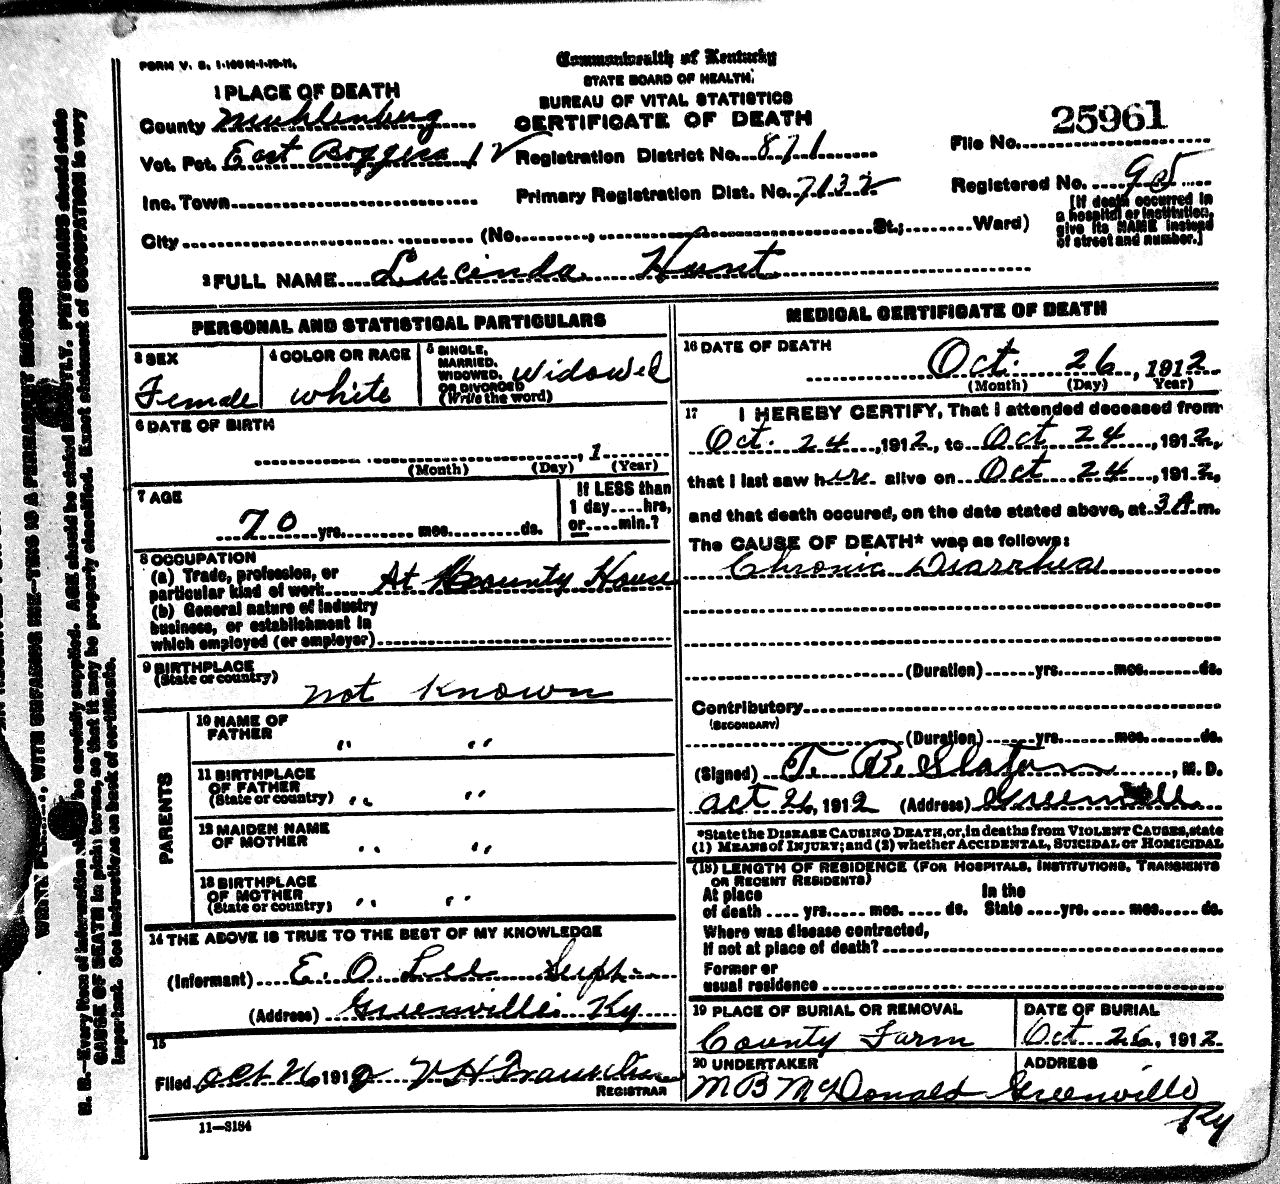 FORM V. S. 1-100M-1-10-11.
Commonwealth of Kentucky
STATE BOARD OF HEALTH.
BUREAU OF VITAL STATISTICS
CERTIFICATE OF DEATH
1 PLACE OF DEATH
County Muhlenberg
Vot. Pct. East 12
Inc. Town
City (No. , St.; Ward)
Registration District No. 871
Primary Registration Dist. No. 7132
File No. 25961
Registered No. 95
[If death occurred in
a hospital or institution,
give its NAME instead
of street and number.]
2 FULL NAME Lucinda Hunt
PERSONAL AND STATISTICAL PARTICULARS
3 SEX
Female
4 COLOR OR RACE
white
5 SINGLE,
MARRIED,
WIDOWED,
OR DIVORCED
(Write the word)
Widowed
6 DATE OF BIRTH
, 1
(Month) (Day) (Year)
7 AGE
70 yrs. mos. ds.
If LESS than
1 day....hrs,
or....min.?
8 OCCUPATION
(a) Trade, profession, or
particular kind of work At County House
(b) General nature of industry
business, or establishment in
which employed (or employer)
9 BIRTHPLACE
(State or country)
not Known
PARENTS
10 NAME OF
FATHER " "
11 BIRTHPLACE
OF FATHER
(State or country) " "
12 MAIDEN NAME
OF MOTHER " "
13 BIRTHPLACE
OF MOTHER
(State or country) " "
14 THE ABOVE IS TRUE TO THE BEST OF MY KNOWLEDGE
(Informant) E. O. Lee Supt
(Address) Greenville Ky
15
Filed Oct 26 1912 V H
REGISTRAR
11-3184
MEDICAL CERTIFICATE OF DEATH
16 DATE OF DEATH
Oct. 26, 1912
(Month) (Day) (Year)
17 I HEREBY CERTIFY, That I attended deceased from
Oct. 24, 1912, to Oct 24, 1912,
that I last saw her alive on Oct 24, 1912,
and that death occured, on the date stated above, at 3 A m.
The CAUSE OF DEATH* was as follows:
Chronic Diarrhea
(Duration) yrs. mos. ds.
Contributory
(SECONDARY)
(Duration) yrs. mos. ds.
(Signed) T. B. Slaton, M. D.
Oct 26, 1912 (Address) Greenville
*State the DISEASE CAUSING DEATH, or, in deaths from VIOLENT CAUSES, state
(1) MEANS of INJURY; and (2) whether ACCIDENTAL, SUICIDAL or HOMICIDAL
(18) LENGTH OF RESIDENCE (FOR HOSPITALS, INSTITUTIONS, TRANSIENTS
OR RECENT RESIDENTS)
At place
of death .... yrs. .... mos. .... ds.
In the
State .... yrs. .... mos. .... ds.
Where was disease contracted,
if not at place of death?
Former or
usual residence
19 PLACE OF BURIAL OR REMOVAL
County Farm
DATE OF BURIAL
Oct 26, 1912
20 UNDERTAKER
M B McDonald
ADDRESS
Greenville
Ky
WITH UNFADING INK—THIS IS A PERMANENT RECORD
N. B.—Every item of information should be carefully supplied. AGE should be stated EXACTLY. PHYSICIANS should state
CAUSE OF DEATH in plain terms, so that it may be properly classified. Exact statement of OCCUPATION is very
important. See instructions on back of certificate.